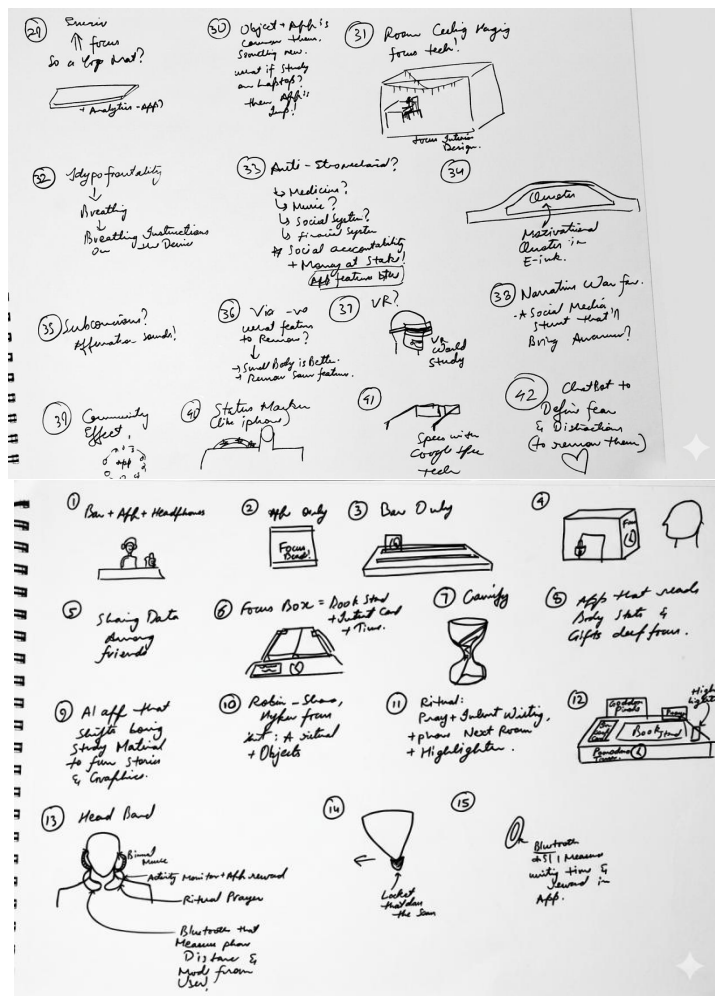 29
focus
So a Yoga Mat?
+ Analytics - App?
30
Object + App is
common them.
Something new.
what if study
on Laptop?
then App is
Imp!
31
Room Ceiling Hanging
focus tech!
focus Interior
Design.
32
Hypofrontality
Breathing
Breathing Instructions
on the Device
33
Anti -
Medicine?
Music?
Social System?
Financial System
Social accountability
+ Money at Stake!
App features
34
Quotes
Motivational
Quotes in
E-ink.
35
Subconscious?
Affirmation sounds!
36
Via -ve
what features
to Remove?
Small Body is Better.
Remove Some features.
37
VR?
VR
World
Study
38
Narrative War fare.
A Social Media
Stunt that'll
Bring Awareness?
39
Community
Effect
App
40
Status Marker
(like iphone)
41
Specs with
Google
tech
42
ChatBot to
Define fear
& Distractions
(to remove them)
1
Bar + App + Headphones
2
App Only
Focus
Band!
3
Bar Only
4
5
Sharing Data
among
friends
6
Focus Box = Book Stand
+ Intent Card
+ Timer.
7
Gamify
8
App that reads
Body State &
Gifts deep focus.
9
AI app that
shifts boring
Study Material
to fun stories
& Graphics.
10
Robin - Sharma,
Hyper focus
kit: A ritual
+ Objects
11
Ritual:
Pray + Intent Writing,
+ phone Next Room
+ Highlighter.
12
High
lighter
Book
Stand
Pomodoro
Timer
13
Head Band
Binaural
Music
Activity Monitor + App reward
Ritual Prayer
Bluetooth that
Measure phone
Distance &
Mode from
User!
14
Locket
that does
the same
15
Or
Bluetooth
Measures
writing time &
reward in
App.